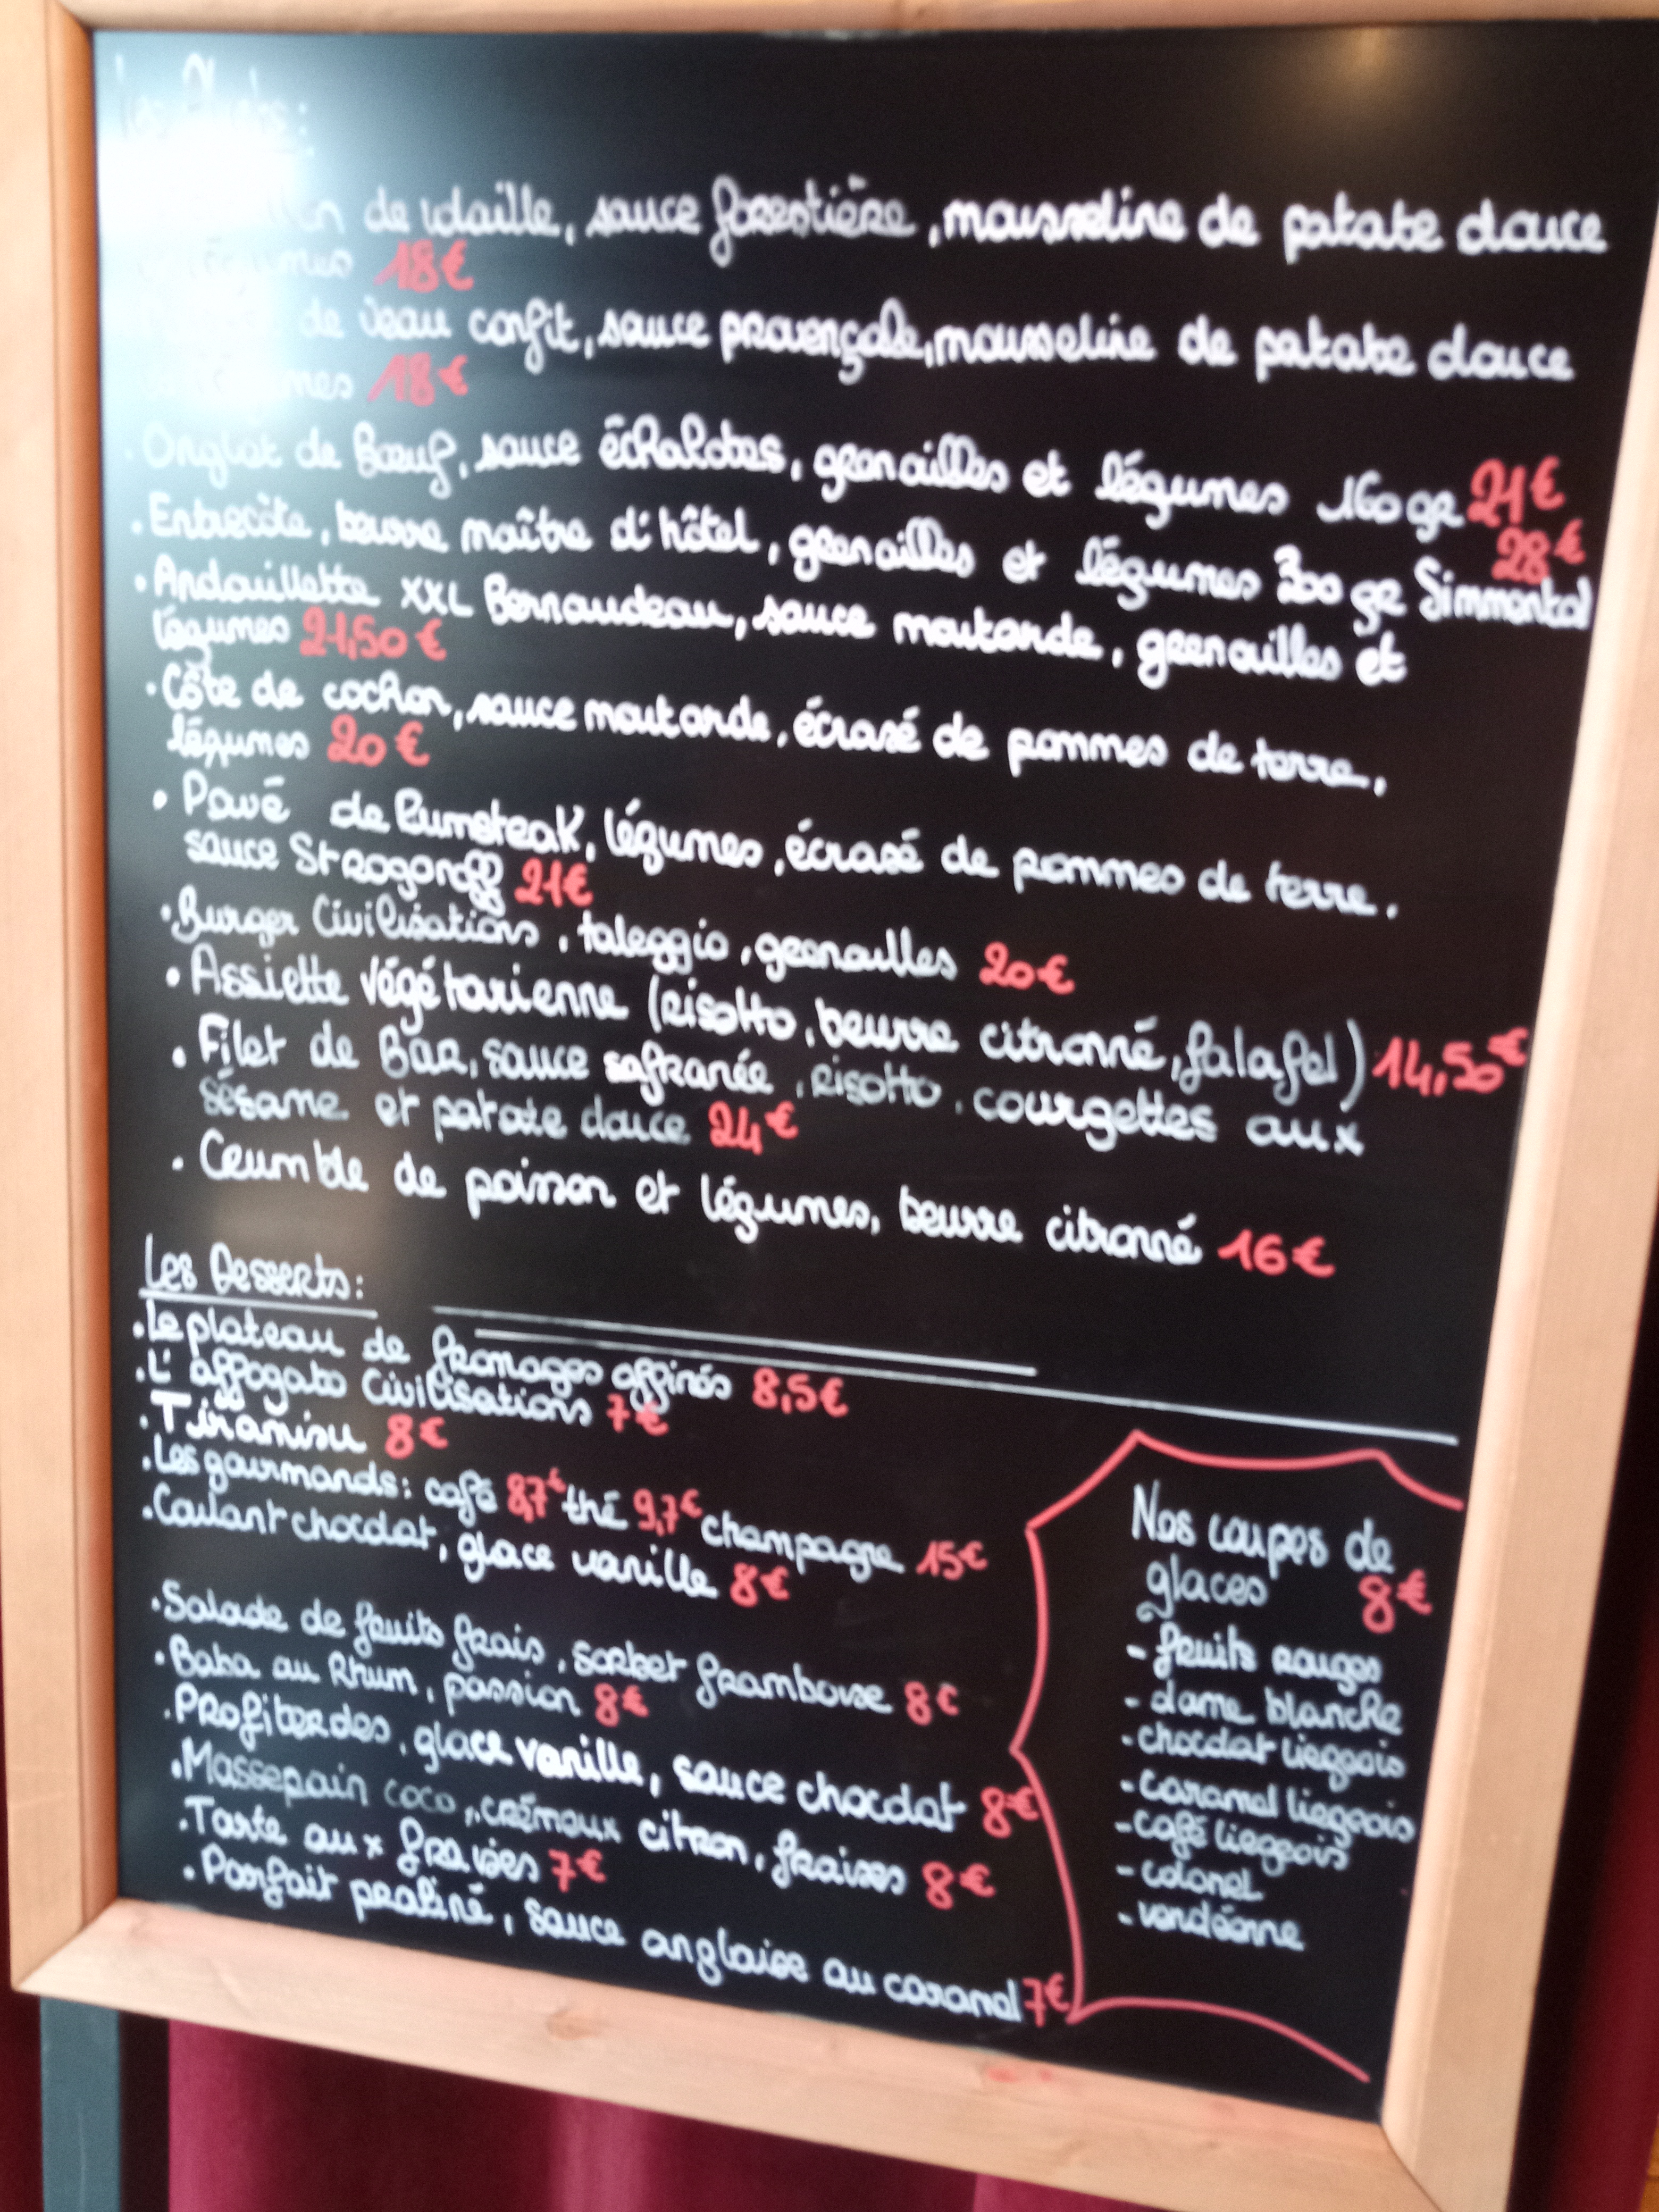 Les Plats:
de volaille, sauce forestière, mousseline de patate douce
légumes 18€
de veau confit, sauce provençale, mousseline de patate douce
18€
. Onglet de Boeuf, sauce échalotes, grenailles et légumes 160gr 21€
. Entrecôte, beurre maître d'hôtel, grenailles et légumes 300 gr Simmental 28€
. Andouillette XXL Bernaudeau, sauce moutarde, grenailles et
légumes 21,50€
. Côte de cochon, sauce moutarde, écrasé de pommes de terre,
légumes 20€
. Pavé de Rumsteak, légumes, écrasé de pommes de terre.
sauce Strogonoff 21€
. Burger Civilisations, taleggio, grenailles 20€
. Assiette végétarienne (risotto, beurre citronné, falafel) 14,50€
. Filet de Bar, sauce safranée, risotto, courgettes aux
sésame et patate douce 24€
. Crumble de poisson et légumes, beurre citronné 16€
Les Desserts:
. Le plateau de fromages affinés 8,5€
. L'affogato Civilisations 7€
. Tiramisu 8€
. Les gourmands: café 8,7€ thé 9,7€ champagne 15€
. Coulant chocolat, glace vanille 8€
. Salade de fruits frais, sorbet framboise 8€
. Baba au Rhum, passion 8€
. Profiteroles, glace vanille, sauce chocolat 8€
. Massepain coco, crémeux citron, fraises 8€
. Tarte aux fraises 7€
. Parfait praliné, sauce anglaise au caramel 7€
Nos coupes de
glaces 8€
- fruits rouges
- dame blanche
- chocolat liegeois
- caramel liegeois
- café liegeois
- colonel
- vendéenne